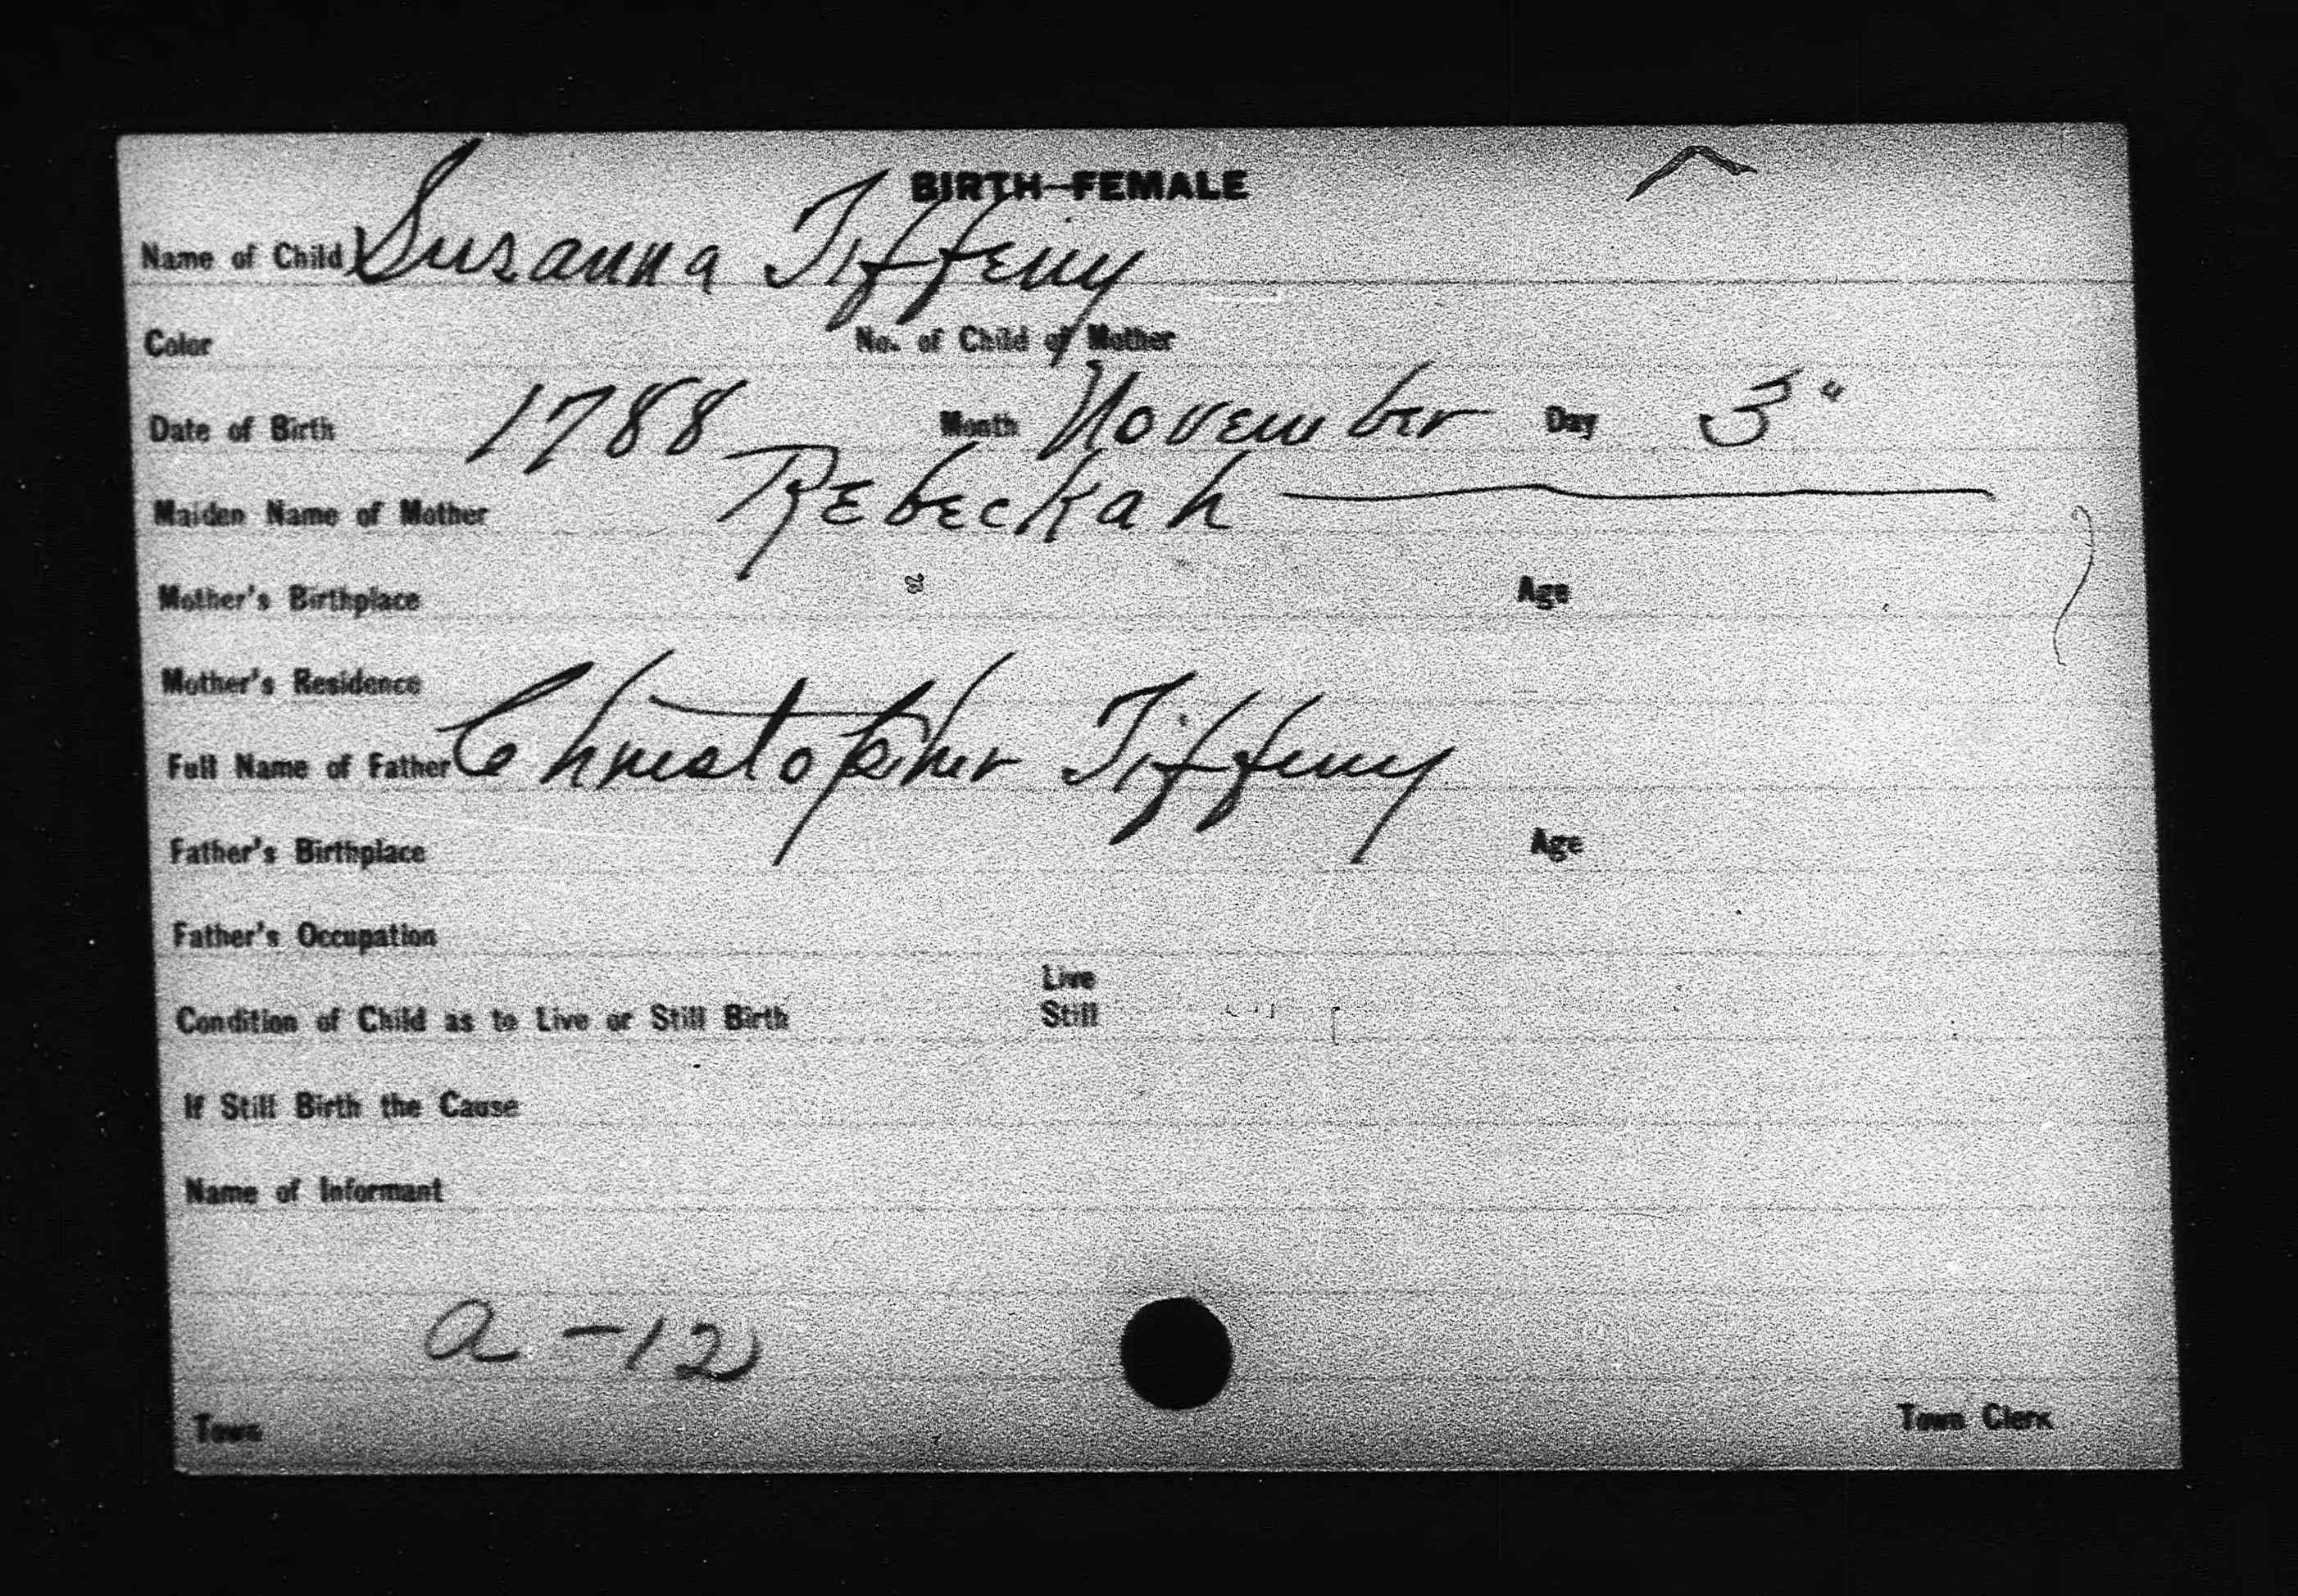 BIRTH—FEMALE
Name of Child Susanna Tiffeny
Color No. of Child of Mother
Date of Birth 1788 Month November Day 3"
Maiden Name of Mother Rebeckah
Mother's Birthplace Age
Mother's Residence
Full Name of Father Christopher Tiffeny
Father's Birthplace Age
Father's Occupation
Live
Condition of Child as to Live or Still Birth Still
If Still Birth the Cause
Name of Informant
a-12
Town Town Clerk